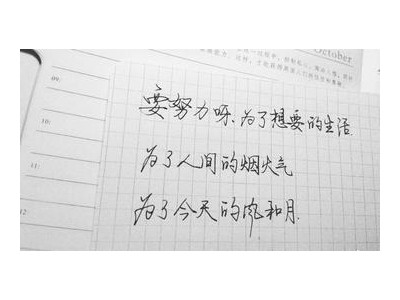 October
09:
10:
11:
12
要努力呀、为了想要的生活.
为了人间的烟火气
为了今天的风和月.